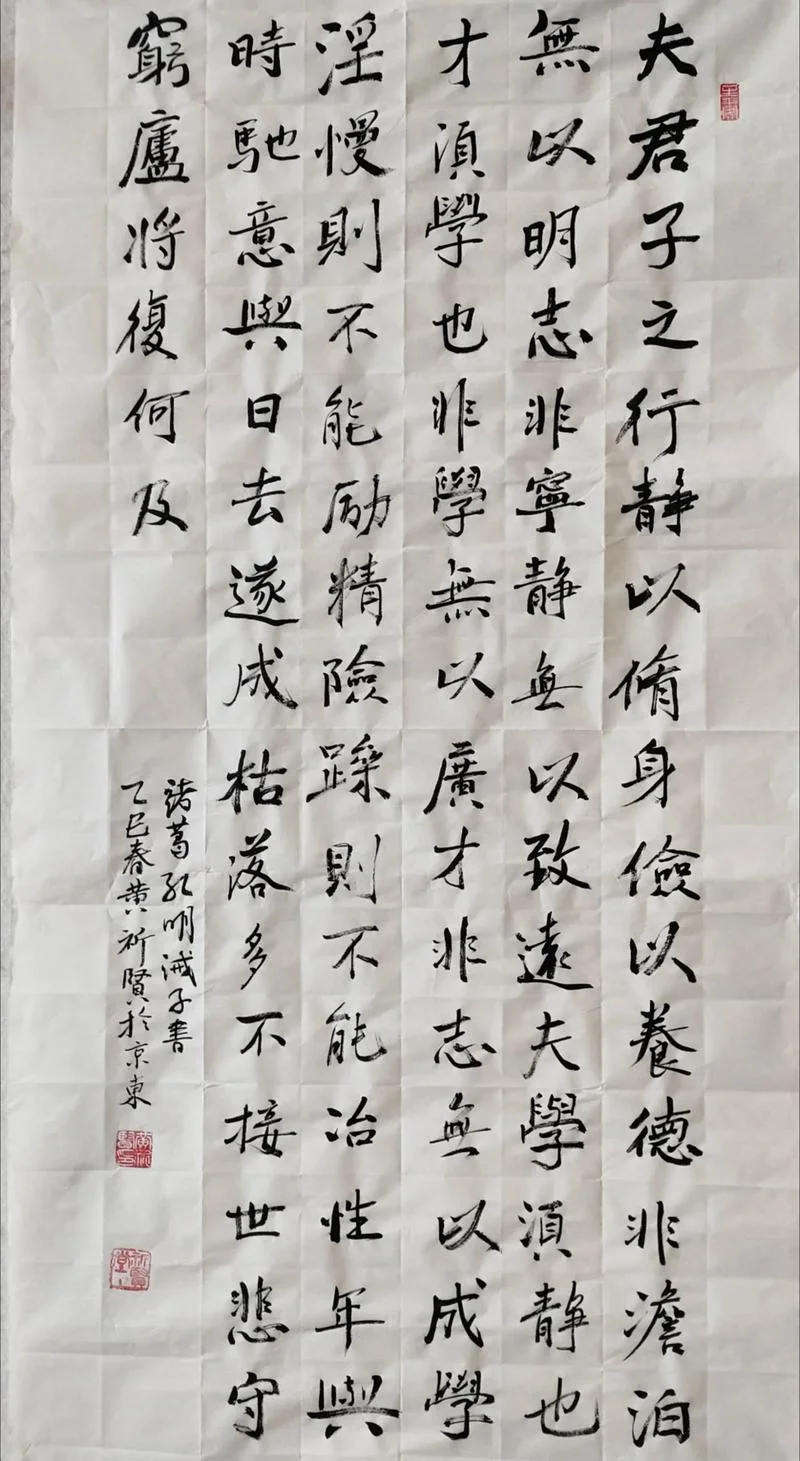 夫君子之行静以脩身儉以養德非澹泊
無以明志非寧静無以致遠夫學湏静也
才湏學也非學無以廣才非志無以成學
淫慢則不能励精險躁則不能冶性年與
時馳意與日去遂成枯落多不接世悲守
窮廬將復何及
諸葛孔明誡子書
乙巳春黄祈賢於京東